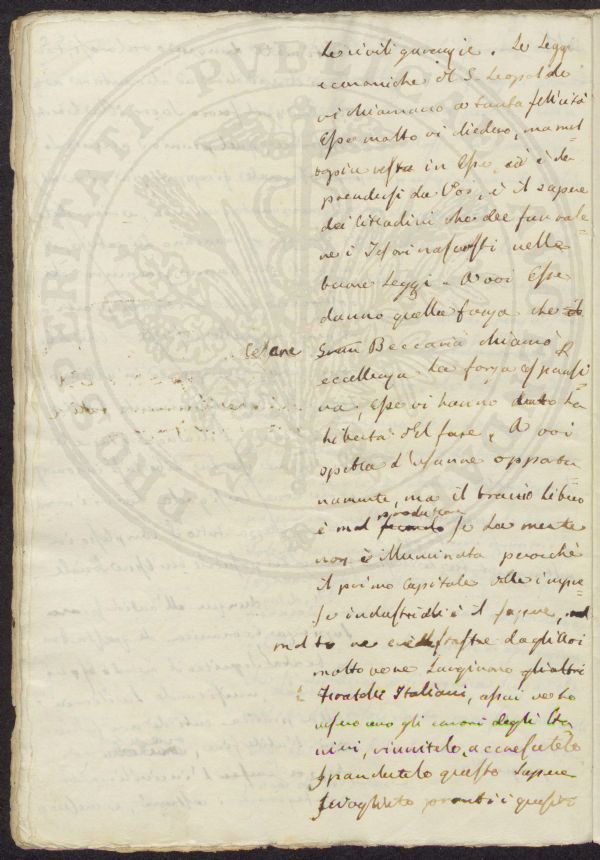 Le civili guarenzie. Le Leggi
economiche di S. Leopoldo
vi chiamano a tanta felicità
Esse molto vi diedero, ma mol
to più resta in Esse, ciò è da
prendersi da Voi, è il sapere
dei Cittadini che dee far vale=
re i Tesori nascosti nelle
buone Leggi. A voi Esse
danno quella forza che il
Cesare Gran Beccaria chiamò p
eccellenza la forza espansi
va, Esse vi hanno dato la
libertà del fare, A voi
spetta d'usarne opportu
namente, ma il braccio libero
è mal fecondo produttore se la mente
non è illuminata perochè
il primo capitale delle impre=
se industriali è il sapere,
molto ve dagli Avi
molto ve ne gli altri
Fratelli Italiani, assai ve lo
gli errori degli Stra
nieri, riunitelo, accrescetelo
Spandetelo questo Sapere
pronti i